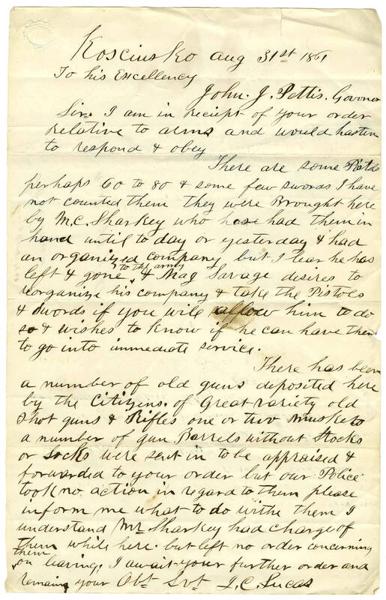 Kosciusko Aug 31st 1861
To his Excellency
John. J. Pettis. Govenor
Sir. I am in receipt of your order
relative to arms and would hasten
to respond & obey
There are some Pistols
perhaps 60 to 80 & some few swords I have
not counted them they were Brought here
by M.C. Sharkey who has had them in
hand until to day or yesterday & had
an organized company, but I lear he has
left & gone to the army & Maj Savage desires to
reorganize his company & take the Pistols
& swords if you will allow him to do
so & wishes to know if he can have them
to go into immediate service.
There has been
a number of old guns deposited here
by the Citizens of Great variety old
shot guns & Rifles one or two muskets
a number of gun Barrels without Stocks
or Locks were sent in to be appraised &
forwarded to your order but our Police
took no action in regard to them please
inform me what to do withe them I
understand Mr Sharkey had charge of
them while here but left no order concerning
them on leaving, I await your further order and
remaing your Obt Svt J. C. Lucas